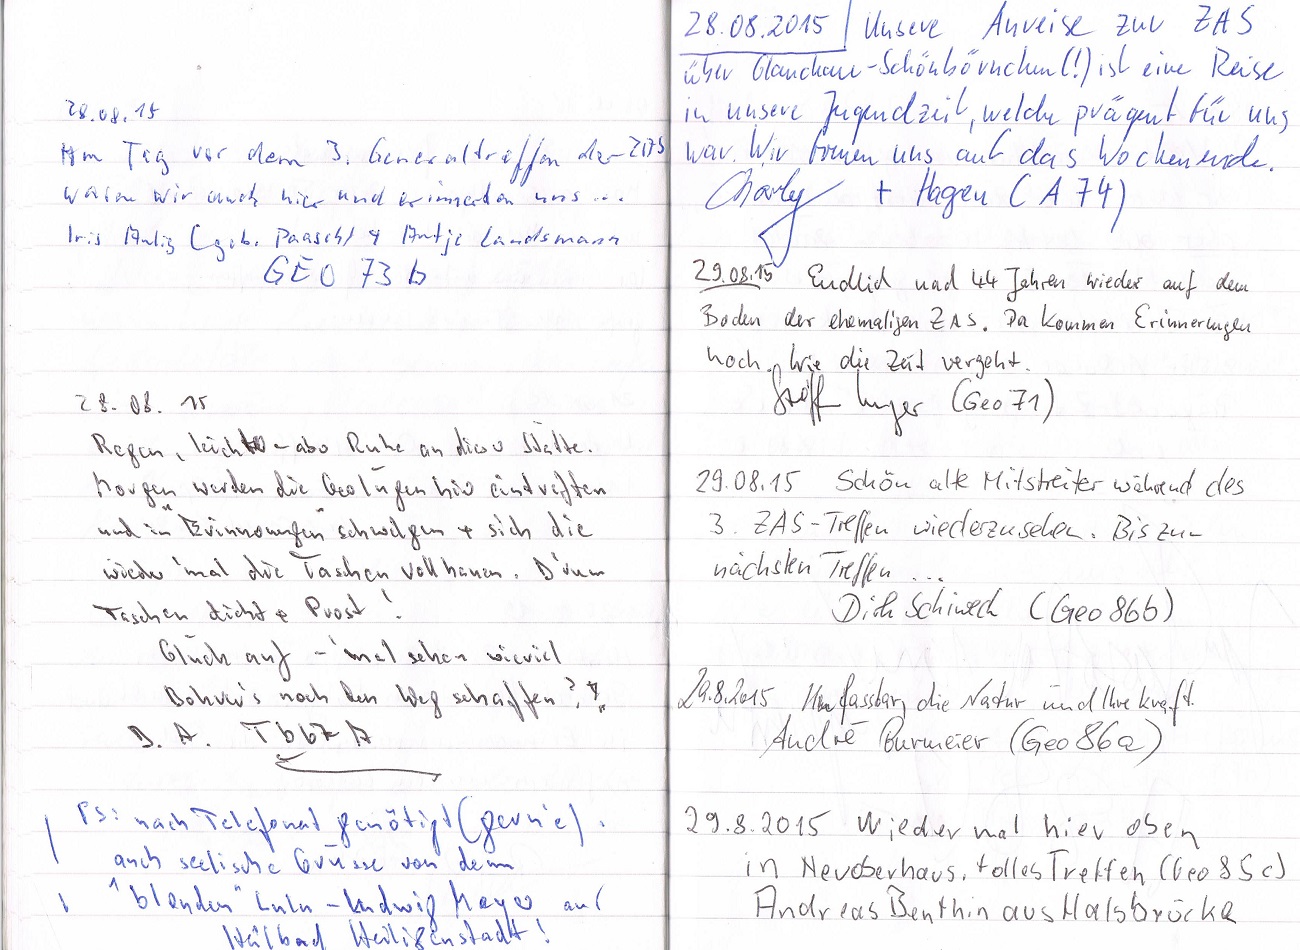 28.08.15
Am Tag vor dem 3. Generaltreffen der ZAS
waren wir auch hier und erinnerten uns ...
Iris (geb. Paasch) & Antje Landsmann
GEO 73 b
28. 08. 15
Regen, leichter – aber Ruhe an dieser Stätte.
Morgen werden die Geolügen hier eintreffen
und in "Erinnerungen" schwelgen + sich die
wieder 'mal die Taschen vollhauen. D'rum
Taschen dicht & Prost!
Glück auf – 'mal sehen wieviel
Bohrer's noch den Weg schaffen?!
D. A. Tbb7 A
PS: nach Telefonat genötigt (gerne).
auch seelische Grüsse von dem
"blenden" Lulu – Ludwig Meyer aus
Heilbad Heiligenstadt!
28.08.2015 Unsere Anreise zur ZAS
über Glauchau-Schönbörnchen(!) ist eine Reise
in unsere Jugendzeit, welche prägent für uns
war. Wir freuen uns auf das Wochenende.
Charly + Hagen (A 74)
29.08.15 Endlich nach 44 Jahren wieder auf dem
Boden der ehemaligen ZAS. Da kommen Erinnerungen
hoch. Wie die Zeit vergeht.
(Geo 71)
29.08.15 Schön alte Mitstreiter während des
3. ZAS-Treffen wiederzusehen. Bis zum
nächsten Treffen ...
Dirk Schiweck (Geo 86b)
29.8.2015 Unfassbar, die Natur und Ihre Kraft.
André Burmeier (Geo 86a)
29.8.2015 Wieder mal hier oben
in Neuoberhaus, tolles Treffen (Geo 85c)
Andreas Benthin aus Halsbrücke